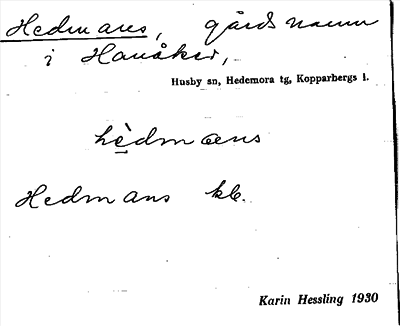 Hedmans, gårdsnamn
i Hanåker,
Husby sn, Hedemora tg, Kopparbergs l.
hèdmans
Hedmans kb.
Karin Hessling 1930